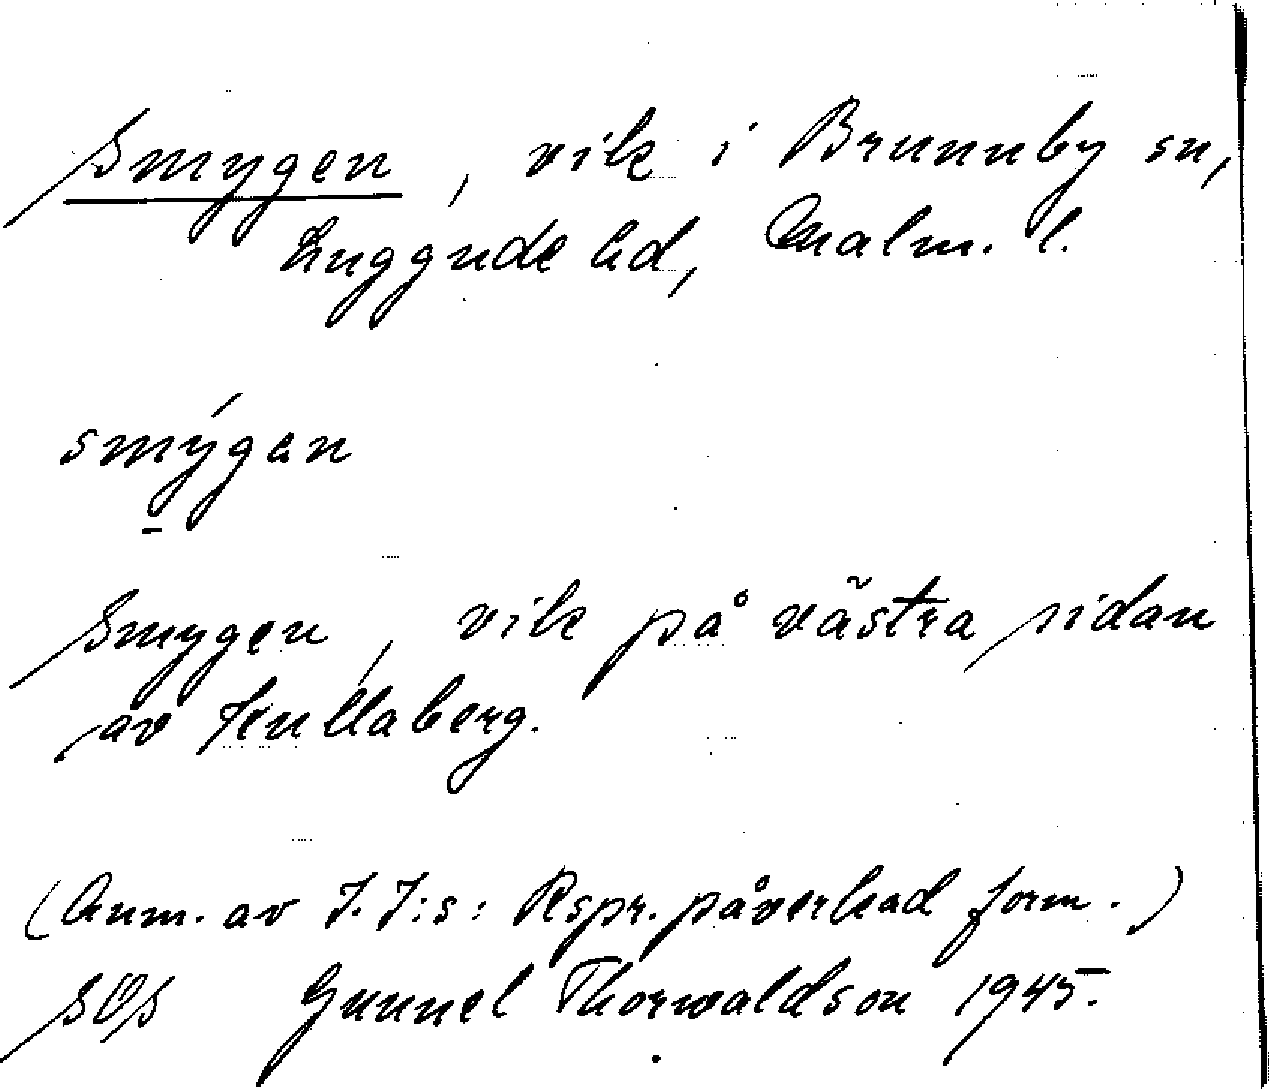 Smygen, vik i Brunnby sn,
Luggude hd, Malm. l.
smýgan
Smygen, vik på västra sidan
av Kullaberg.
(Anm. av J.J:s: Rspr. påverkad form.)
SOS Gunnel Thorwaldson 1945.